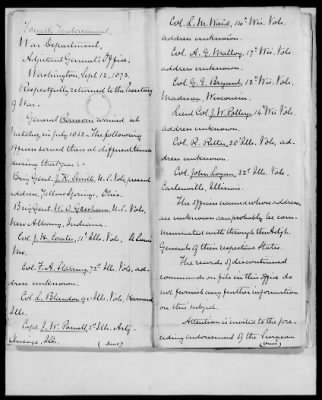 Fourth Endorsement.
War Department,
Adjutant General's Office,
Washington, Sept 12, 1873.
Respectfully returned to the Secretary
of War.
General Ransom arrived at
Natchez in July 1863. The following
officers served there at different times
during that year:-
Brig Genl. J. K. Smith, U.S. Vols, present
address, Yellow Springs, Ohio.
Brig Genl. W. Q. Gresham, U.S. Vols,
New Albany, Indiana.
Col. J. H. Coates, 11" Ills. Vols, St. Louis
Mo.
Col. F. A. Starring, 72" Ills. Vols, ad-
dress unknown.
Col. L. Blanden, 95 Ills. Vols, Harvard
Ills.
Capt J. W. Powell, 1" Ills. Arty.
Ills. (over)
Col. L. M. Ward, 14" Wis. Vols.
address unknown.
Col. A. G. Malloy, 17" Wis. Vols.
address unknown.
Col. G. E. Bryant, 12" Wis. Vols.
Madison, Wisconsin.
Lieut Col. J. W. Polleys, 14" Wis Vols
address unknown.
Col. R. Ritter, 28" Ills. Vols, ad-
dress unknown.
Col. John Logan, 32" Ills. Vols,
Carlinville, Illinois.
The officers named whose address
are unknown can probably be com-
municated with through the Adjt.
Generals of their respective States.
The records of discontinued
commands on file in this office do
not furnish any further information
on this subject.
Attention is invited to the pre-
ceding endorsement of the Surgeon
(over)